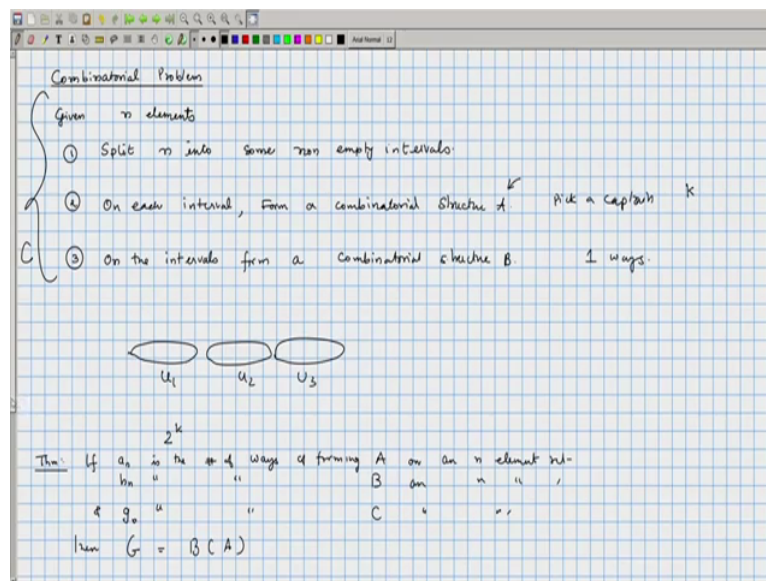 Arial Normal 12
Combinatorial Problem
Given n elements
① Split n into some non empty intervals.
② On each interval, Form a combinatorial structure A. Pick a captain k
C ③ On the intervals form a combinatorial structure B. 1 ways.
U₁ U₂ U₃
2^k
Thm: If aₙ is the # of ways of forming A on an n element set
bₙ " " B on n " "
& gₙ " " C " "
then G = B(A)